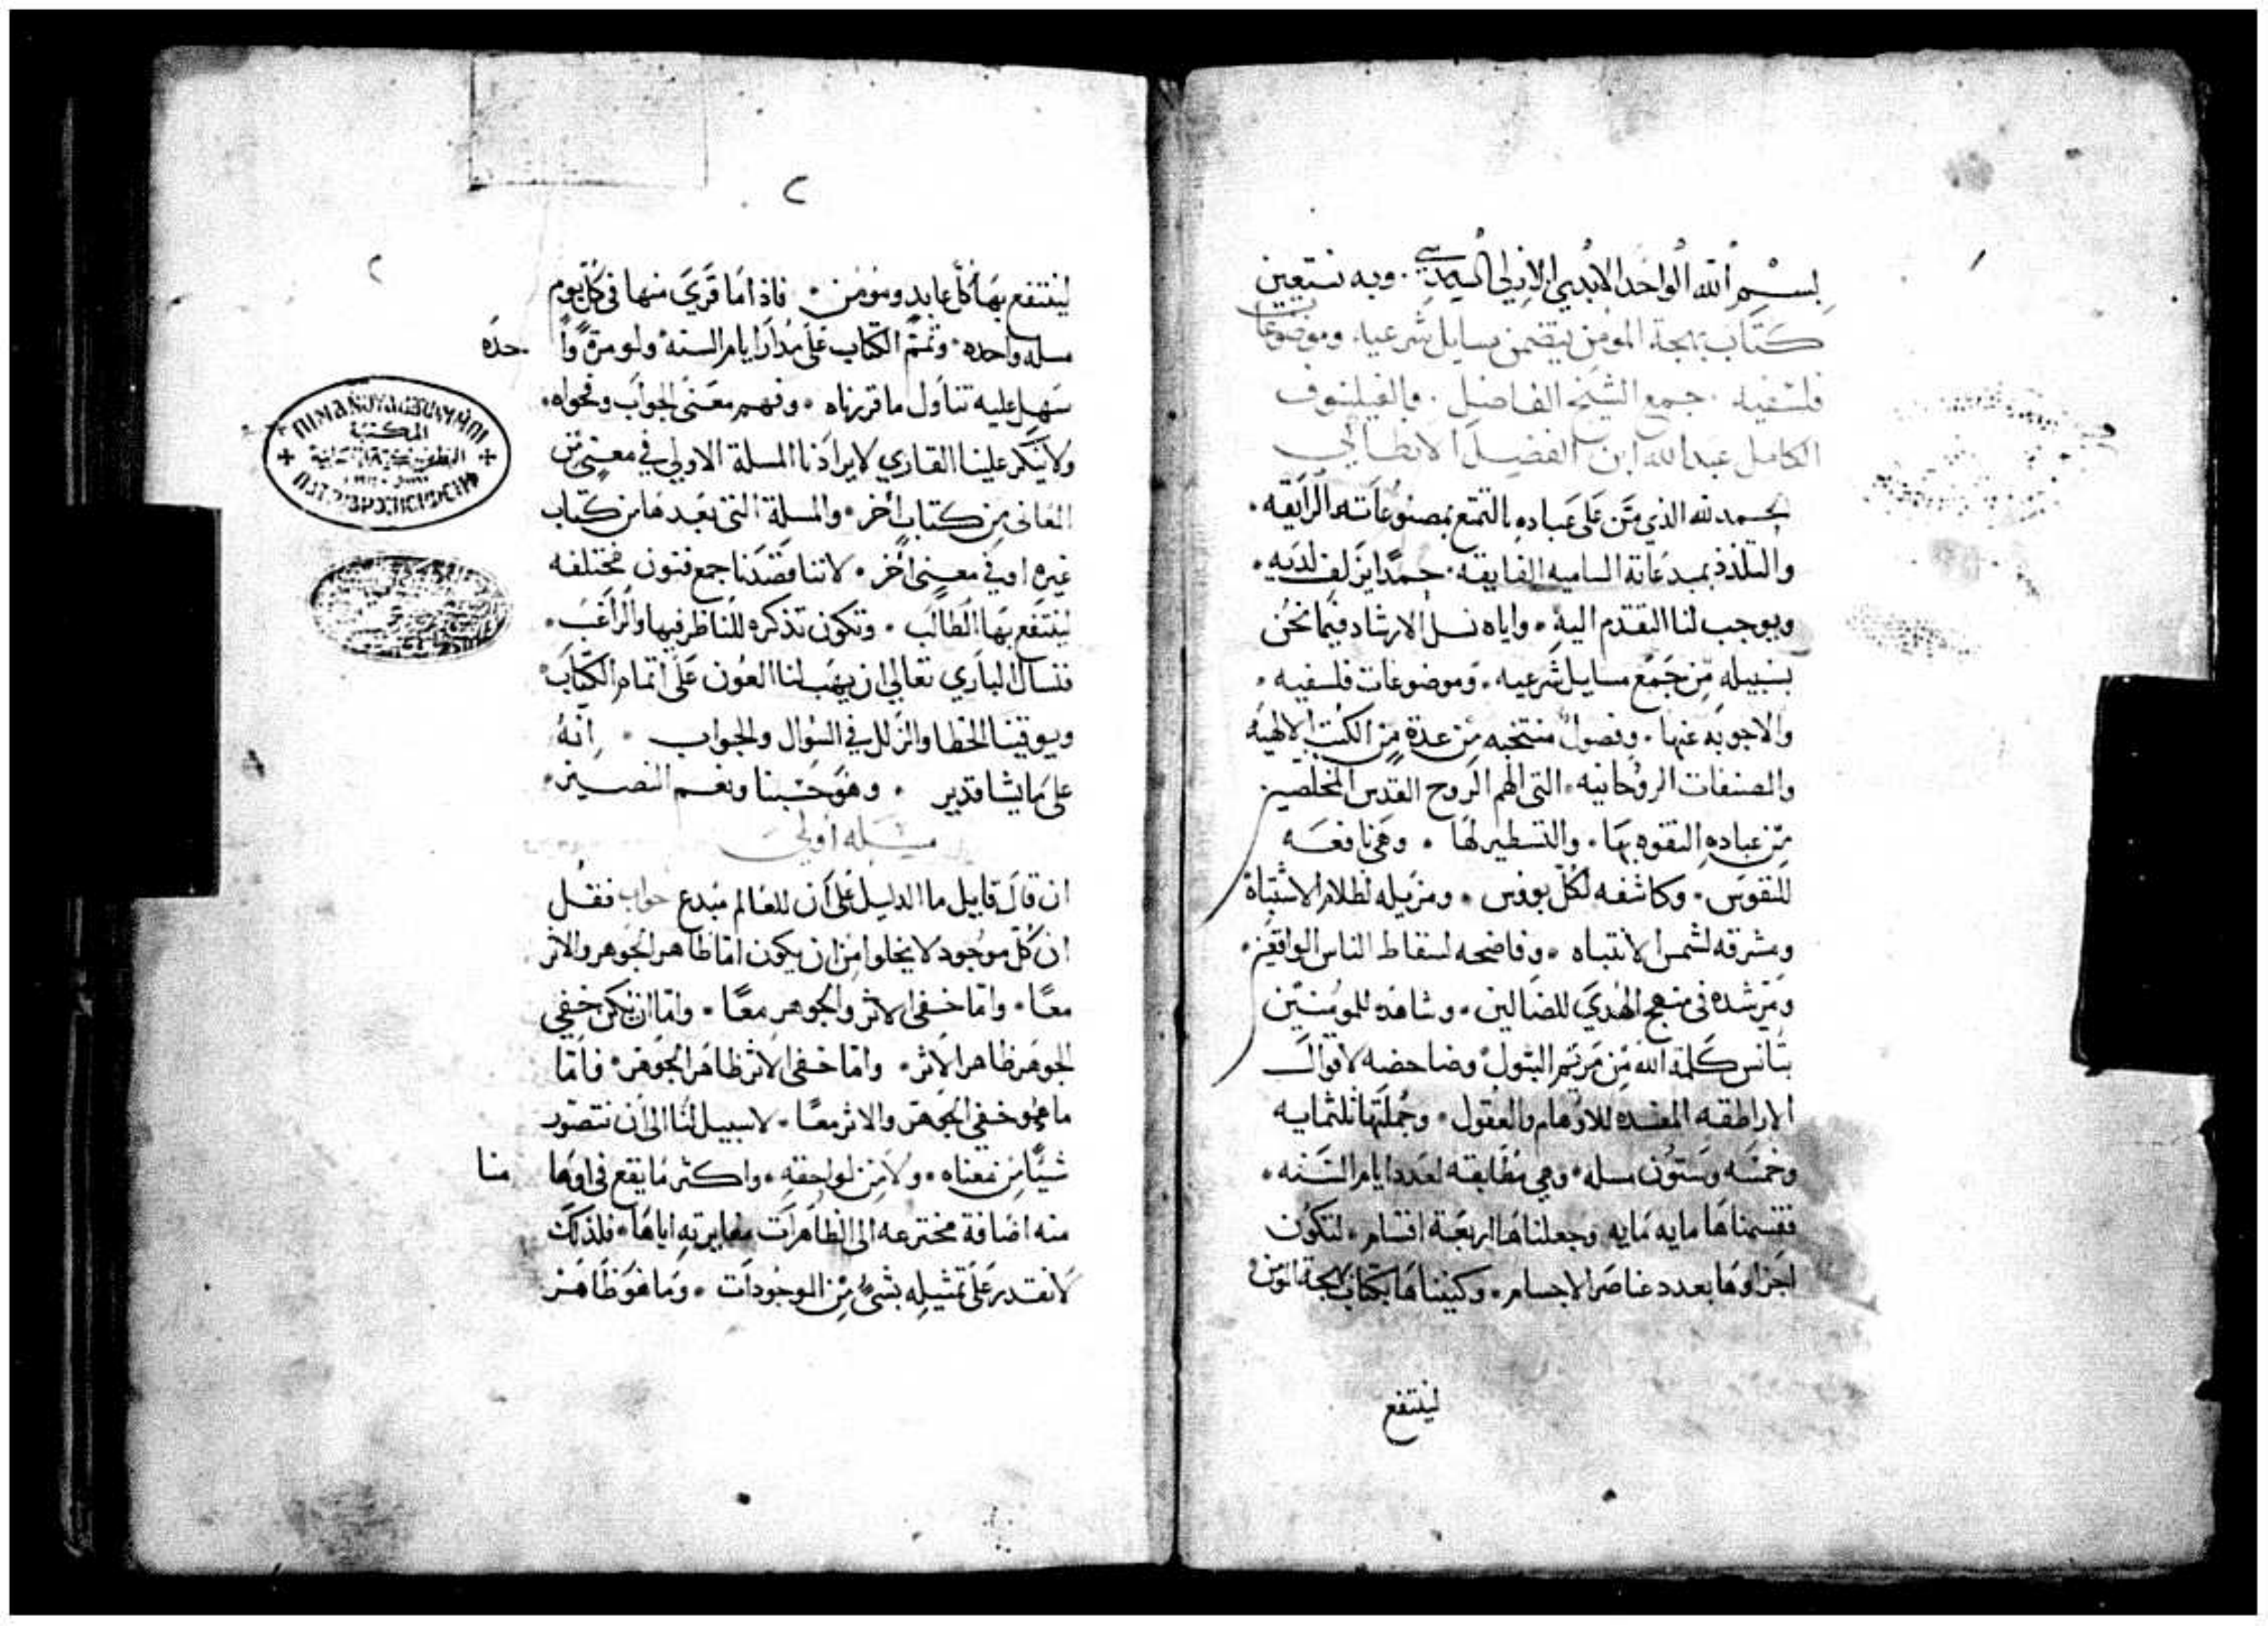 بسم الله الواحد الابدي الازلي السرمدي . وبه نستعين
كتاب بهجة المومن يتضمن مسايل شرعيه . وموضوعات
فلسفيه . جمع الشيخ الفاضل . والفيلسوف
الكامل عبدالله ابن الفضل الانطاكي
الحمد لله الذي منّ على عباده بالتمتع بمصنوعاته الرايقه .
والتلذذ بمبدعاته الساميه الفايقه . حمدًا يزلف لديه .
ويوجب لنا التقدم اليه . واياه نسل الارشاد فيما نحن
بسبيله من جمع مسايل شرعيه . وموضوعات فلسفيه .
والاجوبه عنها . وفصول منتخبه من عدة من الكتب الالهيه
والمصنفات الروحانيه . التي الهم الروح القدس المخلصين
من عباده التفوه بها . والتسطير لها . وهي نافعه
للنفوس . وكاشفه لكل بووس . ومزيله لظلام الاشتباه
ومشرقه لشمس الانتباه . وفاضحه لسقاط الناس الواقعين .
ومرشده في منهج الهدي للضالين . وشاهده للمومنين
بتانس كلمة الله من مريم البتول . وضاحضه لاقوال
الاراطقه المفسده للاوهام والعقول . وجملتها ثلثمايه
وخمسه وستون مسله . وهي مطابقه لعدد ايام السنه .
فقسمناها مايه مايه وجعلناها اربعة اقسام . لتكون
اجزاوها بعدد عناصر الاجسام . وكنيناها بكتاب بهجة المومن
لينتفع
٢
٢
لينتفع بها كل عابد ومومن . فاذا ما قري منها في كل يوم
مسله واحده . وتمم الكتاب على مدار ايام السنه ولو مرة وا حده
سهل عليه تناول ما قرّبناه . وفهم معنى الجواب وفحواه .
ولا ينكر علينا القاري لايرادنا المسلة الاولي في معنى من
المعاني من كتاب اخر . والمسلة التي بعدها من كتاب
غيره او في معنى اخر . لاننا قصدنا جمع فنون مختلفه
لينتفع بها الطالب . وتكون تذكره للناظر فيها والراغب .
فنسال الباري تعالي ان يهب لنا العون على اتمام الكتاب
ويوقينا الخطا والزلل في السوال والجواب . انه
على ما يشا قدير . وهو حسبنا ونعم النصير .
مسله اولي
ان قال قايل ما الدليل على ان للعالم مبدع جواب فقل
ان كل موجود لا يخلوا من ان يكون اما ظاهر الجوهر والاثر
معًا . واما خفي الاثر والجوهر معًا . واما ان يكن خفي
الجوهر ظاهر الاثر . واما خفي الاثر ظاهر الجوهر . فاما
ما هو خفي الجوهر والاثر معًا . لا سبيل لنا الى ان نتصور
شيًا من معناه . ولا من لواحقه . واكثر ما يقع في اوها منا
منه اضافة مخترعه الى الظاهرات مغايرته اياها . فلذلك
لا نقدر على تمثيله بشي من الموجودات . وما هو ظاهر
المكتبة